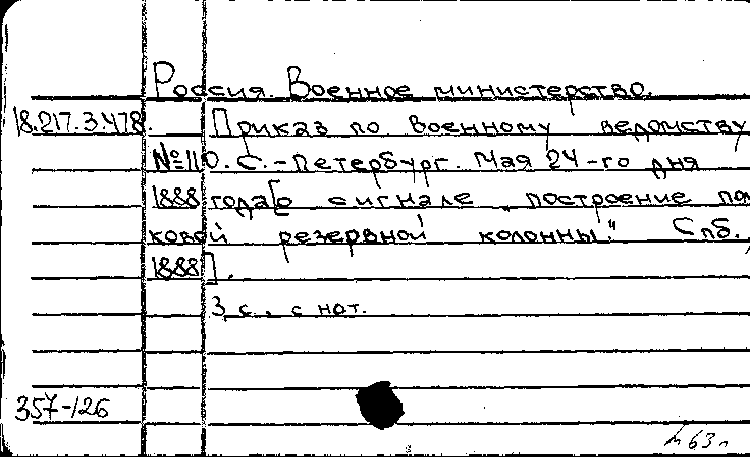 Россия. Военное министерство.
18.217.3.478. Приказ по военному ведомству
№110. С.-Петербург. Мая 24-го дня
1888 года[о сигнале „построение пол
ковой резервной колонны." Спб.,
1888].
3 с. с нот.
357-126